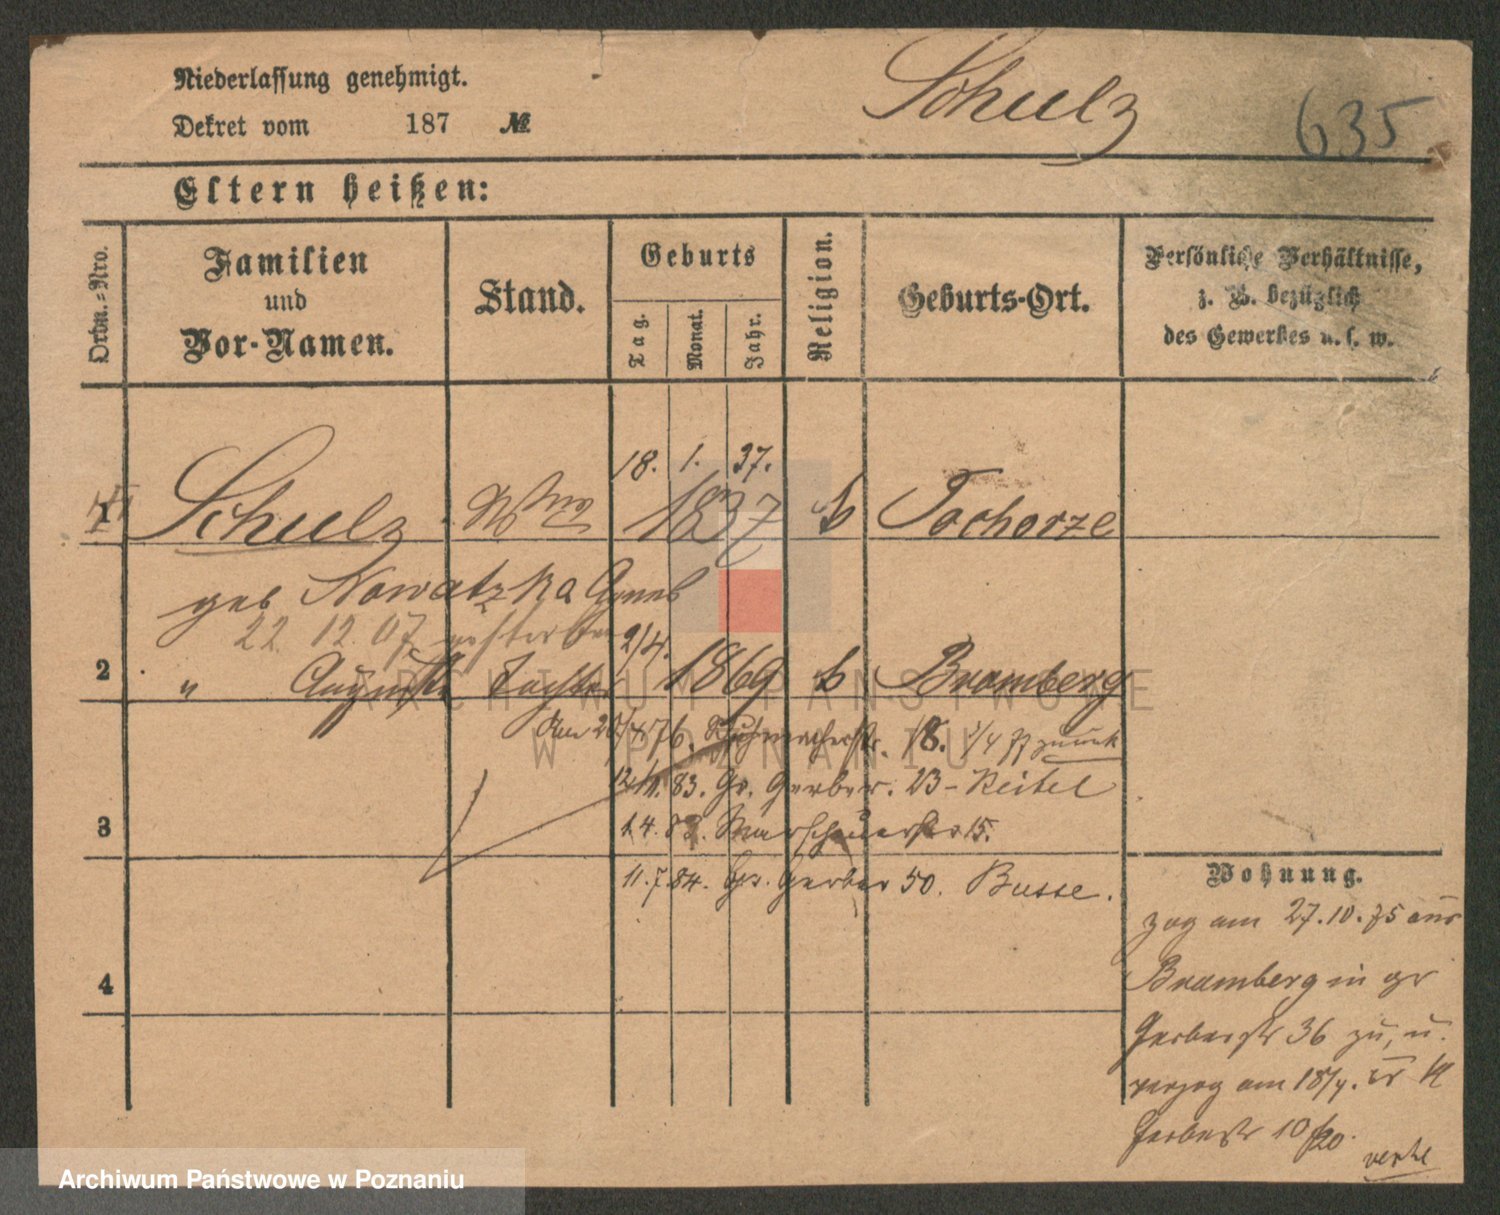 Niederlassung genehmigt.
Schulz
635
Dekret vom 187 №
Eltern heißen:
Ordn.-Nro.
Familien
und
Vor-Namen.
Stand.
Geburts
Tag.
Monat.
Jahr.
Religion.
Geburts-Ort.
Persönliche Verhältnisse,
z. B. bezüglich
des Gewerbes u. s. w.
18. 1. 37.
1 Schulz Wwe 1837 Tochorze
geb Nowatzka Agnes
22 12 07 gestorben
2/4.
2 " Auguste Tochter 1869 Bromberg
Am 20/4 76. 18. 1/4 77 zurück
12/11. 83. Gr. Gerber. 23 - Reitel
3 1.4. 83. 15.
11.7.84. Gr. Gerber 50. Busse.
4
Wohnung.
zog am 27.10.75 aus
Bromberg in gr
Gerberstr 36 zu, u.
verzog am 18/4. Kl
Gerberstr 10/20.
ARCHIWUM PAŃSTWOWE
W POZNANIU
Archiwum Państwowe w Poznaniu